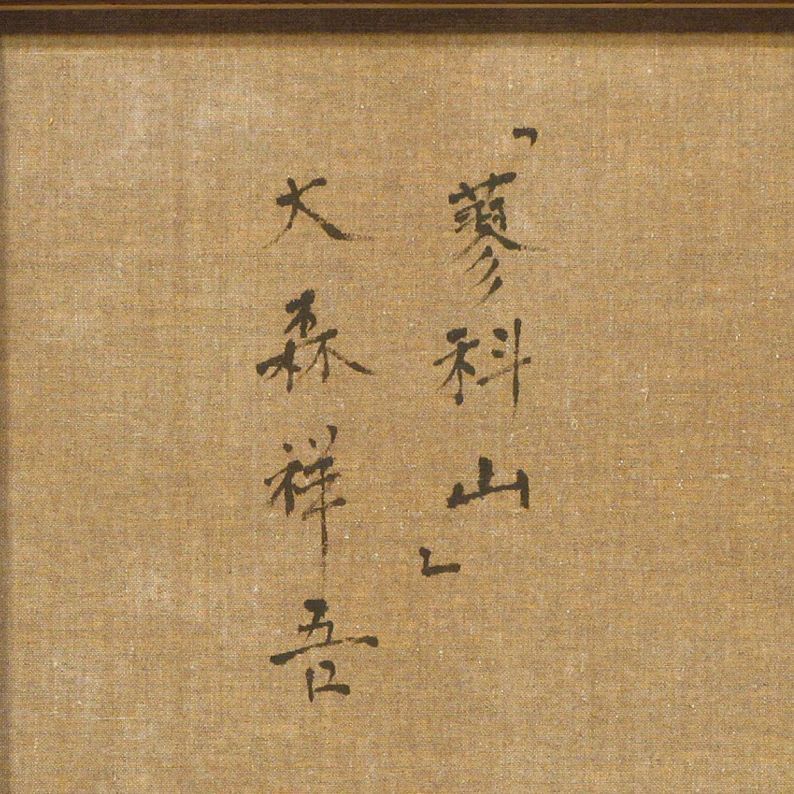 「蓼科山」
大森祥吾